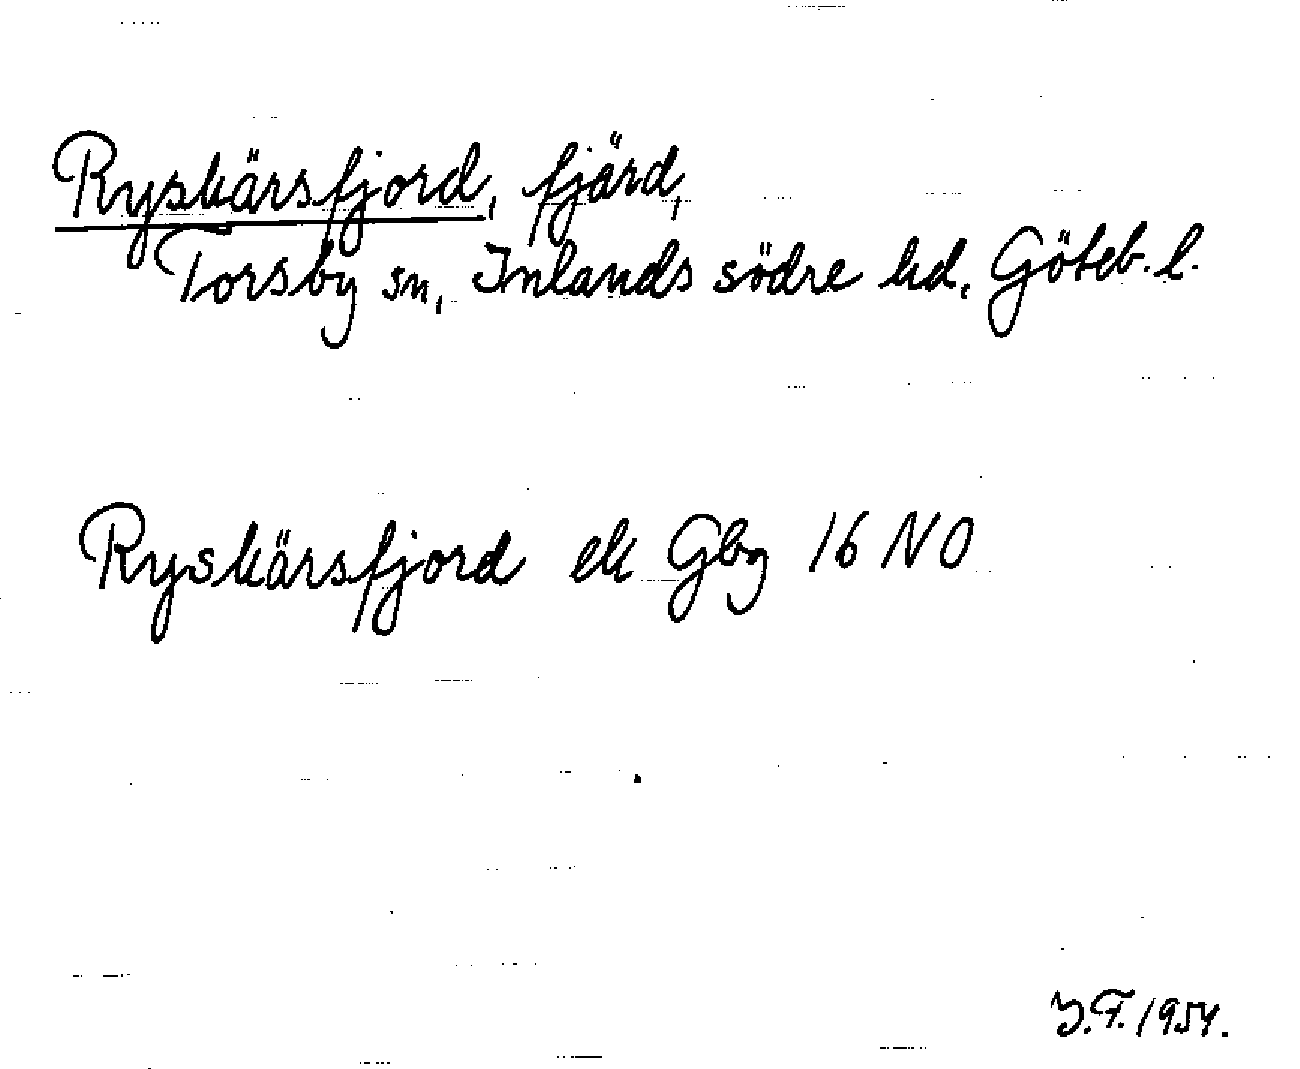 Ryskärsfjord, fjärd,
Torsby sn, Inlands södre hd, Göteb. l.
Ryskärsfjord ek Gbg 16 NO
Y.F. 1954.